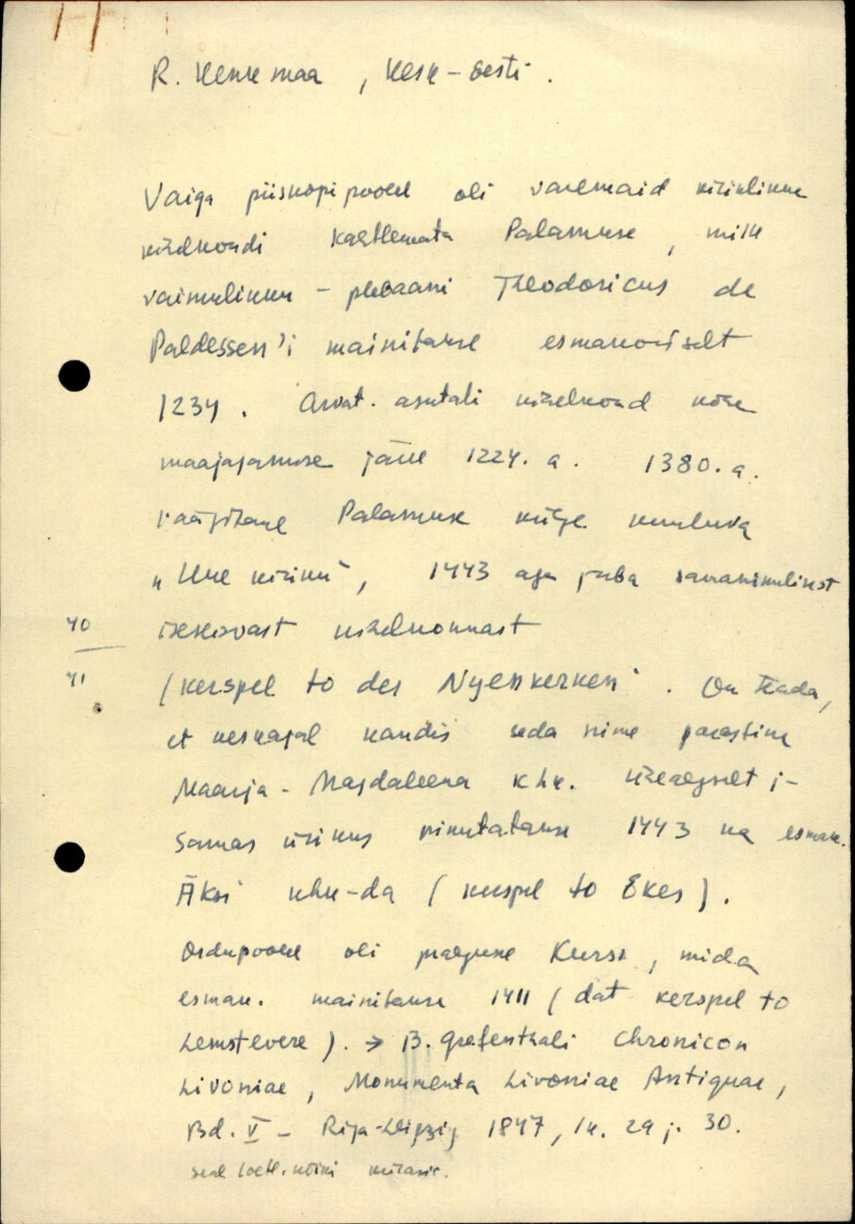 R. Kenkmaa, Kesk-Eesti.
Vaiga piiskopipoolel oli varemaid kirikliku
kihelkondi kahtlemata Palamuse, mille
vaimulikku - plebaani Theodoricus de
Paldessen'i mainitakse esmakordselt
1234. Arvat. asutati kihelkond kohe
maajagamise järele 1224. a. 1380. a.
räägitakse Palamuse külge kuuluva
"Uue kiriku", 1443 aga juba
iseseisvast kihelkonnast
40
41
(kerspel to der Nyenkerken. On teada,
et keskajal kandis seda nime praegune
Maarja-Magdaleena khk. Üheaegselt j-
samas ürikus nimetatakse 1443 ka esmak.
Äksi khk-da (kerspel to Ekes).
Ordupoolel oli praegune Kursi, mida
esmak. mainitakse 1411 (dat kerspel to
Lemstevere). → B. Grefenthali Chronicon
Livoniae, Monumenta Livoniae Antiquae,
Bd. V - Riga-Leipzig 1847, lk. 29 j. 30.
seal